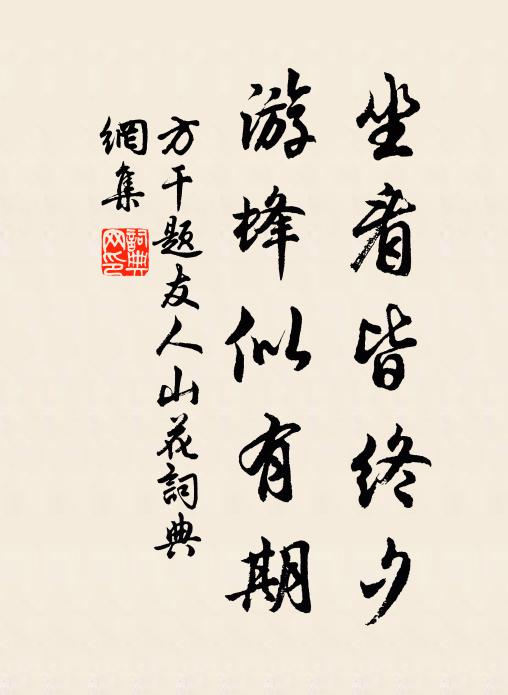 坐看皆終夕
游蜂似有期
方干题友人山花詞典
網集
詞典網印